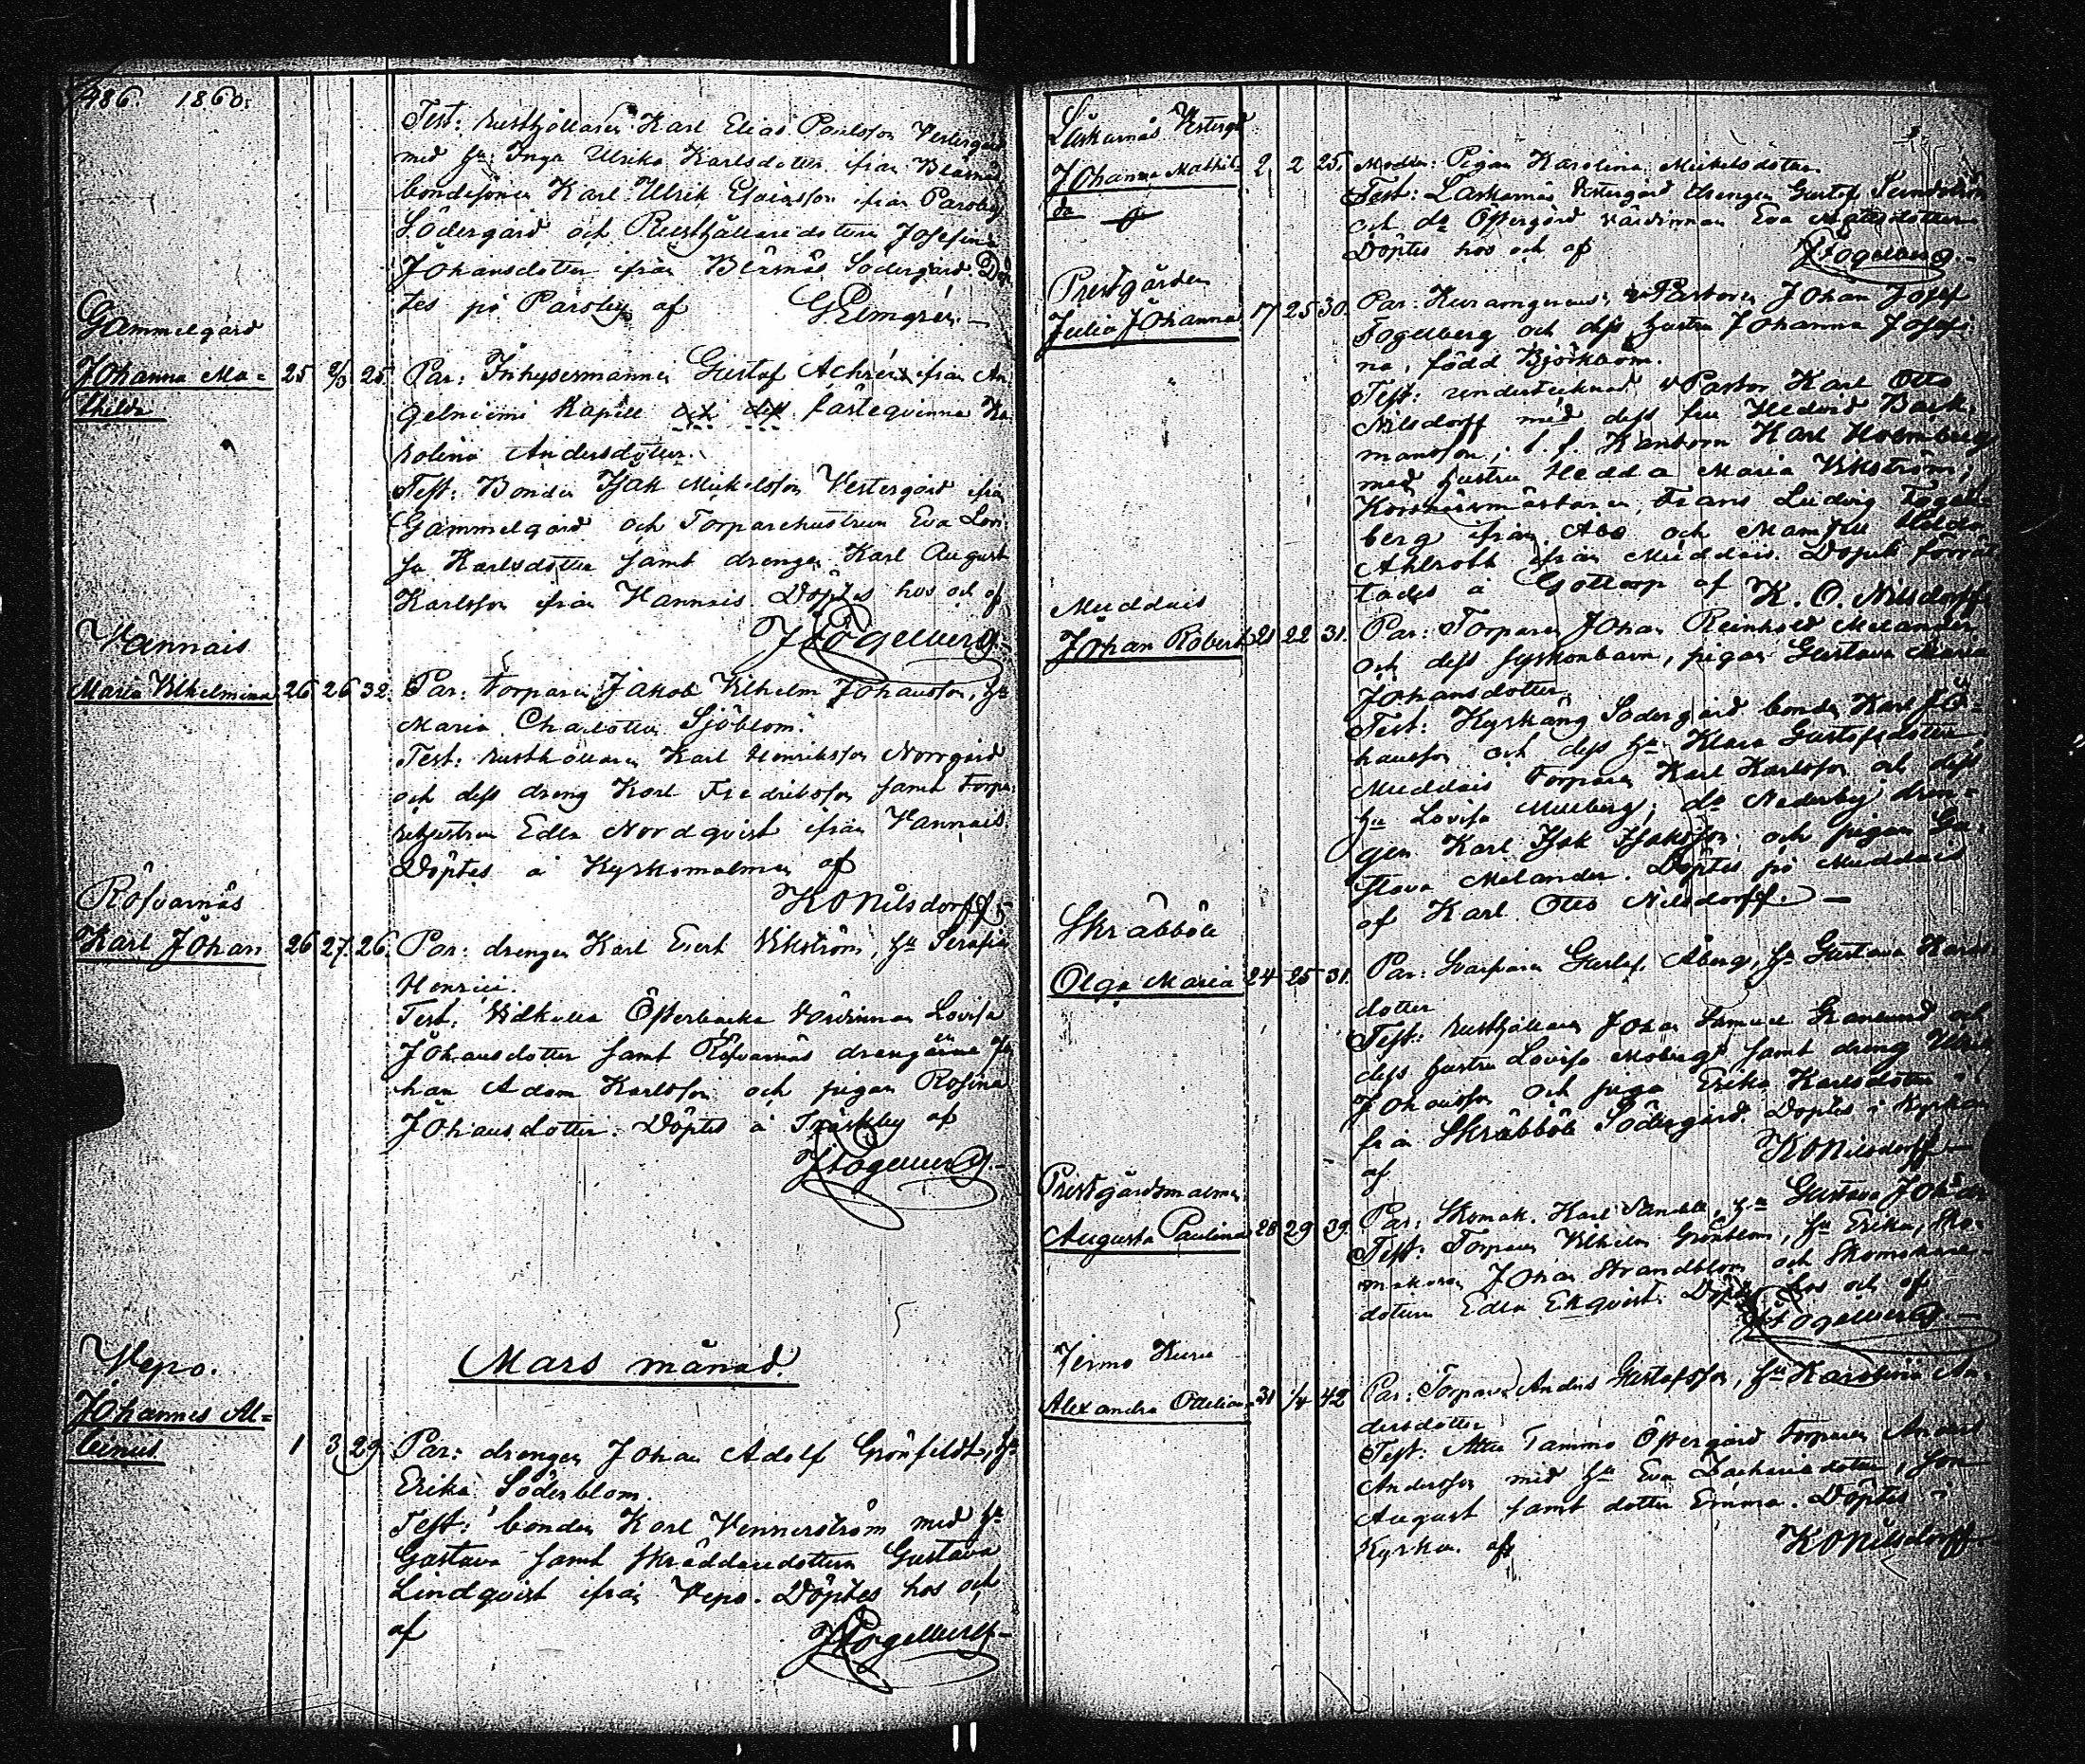 486. 1860.
Test: Rusthållaren Karl Elias Paulsson Vestergård
med hu Inga Ulrika Karlsdotter ifrån
bondesonen Karl Ulrik ifrån Parsby
Södergård och Rusthållaredottern Josefina
Johansdotter ifrån Södergård. Döp
tes på Parsby af G Elmgrén.
Gammelgård
Johanna Ma=
thilda
25 25. Par: Inhysesmannen Gustaf Achrén ifrån An
gelniemi Kapell och dess fästeqvinna Ka
rolina Andersdotter.
Test: Bonden Isak Mickelsson Vestergård ifrån
Gammelgård och Torparehustrun Eva Lovi
sa Karlsdotter samt drengen Karl August
Karlsson ifrån Vannais. Döptes hos och af
J Fogelberg.
Vannais
Maria Vilhelmina 26 26 32. Par: Torparen Jakob Vilhelm Johansson, hu
Maria Charlotta Sjöblom.
Test: Rusthållaren Karl Henriksson Norrgård
och dess dreng Karl Fredriksson samt Torpa
rehustrun Edla Nordqvist ifrån Vannais.
Döptes å Kyrkomalmen af
K O Nilsdorff
Röfvarnäs
Karl Johan 26 27. 26. Par: drengen Karl Evert Vikström, hu Serafia
Henrici.
Test: Östterbacka Värdinnan Lovisa
Johansdotter samt Röfvarnäs drengarne Jo
han Adam Karlsson och pigan Rosina
Johansdotter. Döptes å Träskby af
J Fogelberg.
Mars månad.
Vepo.
Johannes Al=
binus. 1 3 29. Par: drengen Johan Adolf Grönfeldt, hu
Erika Söderblom.
Test: bonden Karl Vennerström med hu
Gustava samt skräddaredottern Gustava
Lindqvist ifrån Vepo. Döptes hos och
af J Fogelberg
Laskarnäs Vestergd
Johanna Mathil= 2 2 25. Modern: Pigan Karolina Mickelsdotter
da Test: Laskarnäs Vestergård drengen Gustaf Sundström
och do Östergård värdinnan Eva Matsdotter
Döptes hos och af J Fogelberg.
Prestgården
Julia Johanna 17 25 30. Par: v Pastoren Johan Josef
Fogelberg och dess hustru Johanna Josefi
na, född Björkbom.
Test: undertecknad v Pastor Karl Otto
Nilsdorff med dess fru Hedvid Back
mansson; t. f. Kantorn Karl Holmberg
med hustru Hedda Maria Vikström;
Frans Ludvig Fogel=
berg ifrån Åbo och Mamsell Hilda
Ahlroth ifrån Muddais. Dopet förrät
tades å Gottorp af K. O. Nilsdorff
Muddais
Johan Robert 21 22 31. Par: Torparen Johan Reinhold Melander
och dess syskonbarn, pigan Gustava Maria
Johansdotter
Test: Kyrkäng Södergård bonden Karl Jo=
hansson och dess hu Klara Gustafsdotter,
Muddais Torparen Karl Karlsson och dess
hu Lovisa Murberg; do Nederby dren=
gen Karl Isak Isaksson och pigan Gu
stava Melander. Döptes på Muddais
af Karl Otto Nilsdorff.
Skräbböle
Olga Maria 24 25 31. Par: Gustaf Åberg, hu Gustava Karls
dotter
Test: Rusthållaren Johan Samuel Granlund och
dess hustru Lovisa Moberg samt dreng Ulrik
Johansson och piga Erika Karlsdotter
från Skräbböle Södergård. Döptes i kyrkan
af K O Nilsdorff
Prestgårdsmalmen
Augusta Paulina 28 29 39. Par: Skomak. Karl Sandell, hu Gustava Johansd
Test: Torparen Vilhelm Grönblom, hu Erika, Sko=
makaren Johan Strandblom och Skomakare
dottern Edla Ekqvist. Döptes hos och af
J Fogelberg.
Jermo Kuru
Alexandra Ottiliana 31 1/4 42 Par: Torparen Anders Gustafsson, hu Karolina An=
dersdotter
Test: Attu Tammo Östergård torparen Anders
Andersson med hu Eva Zachariedotter, son
August samt dotter Emma. Döptes i
Kyrkan af K O Nilsdorff